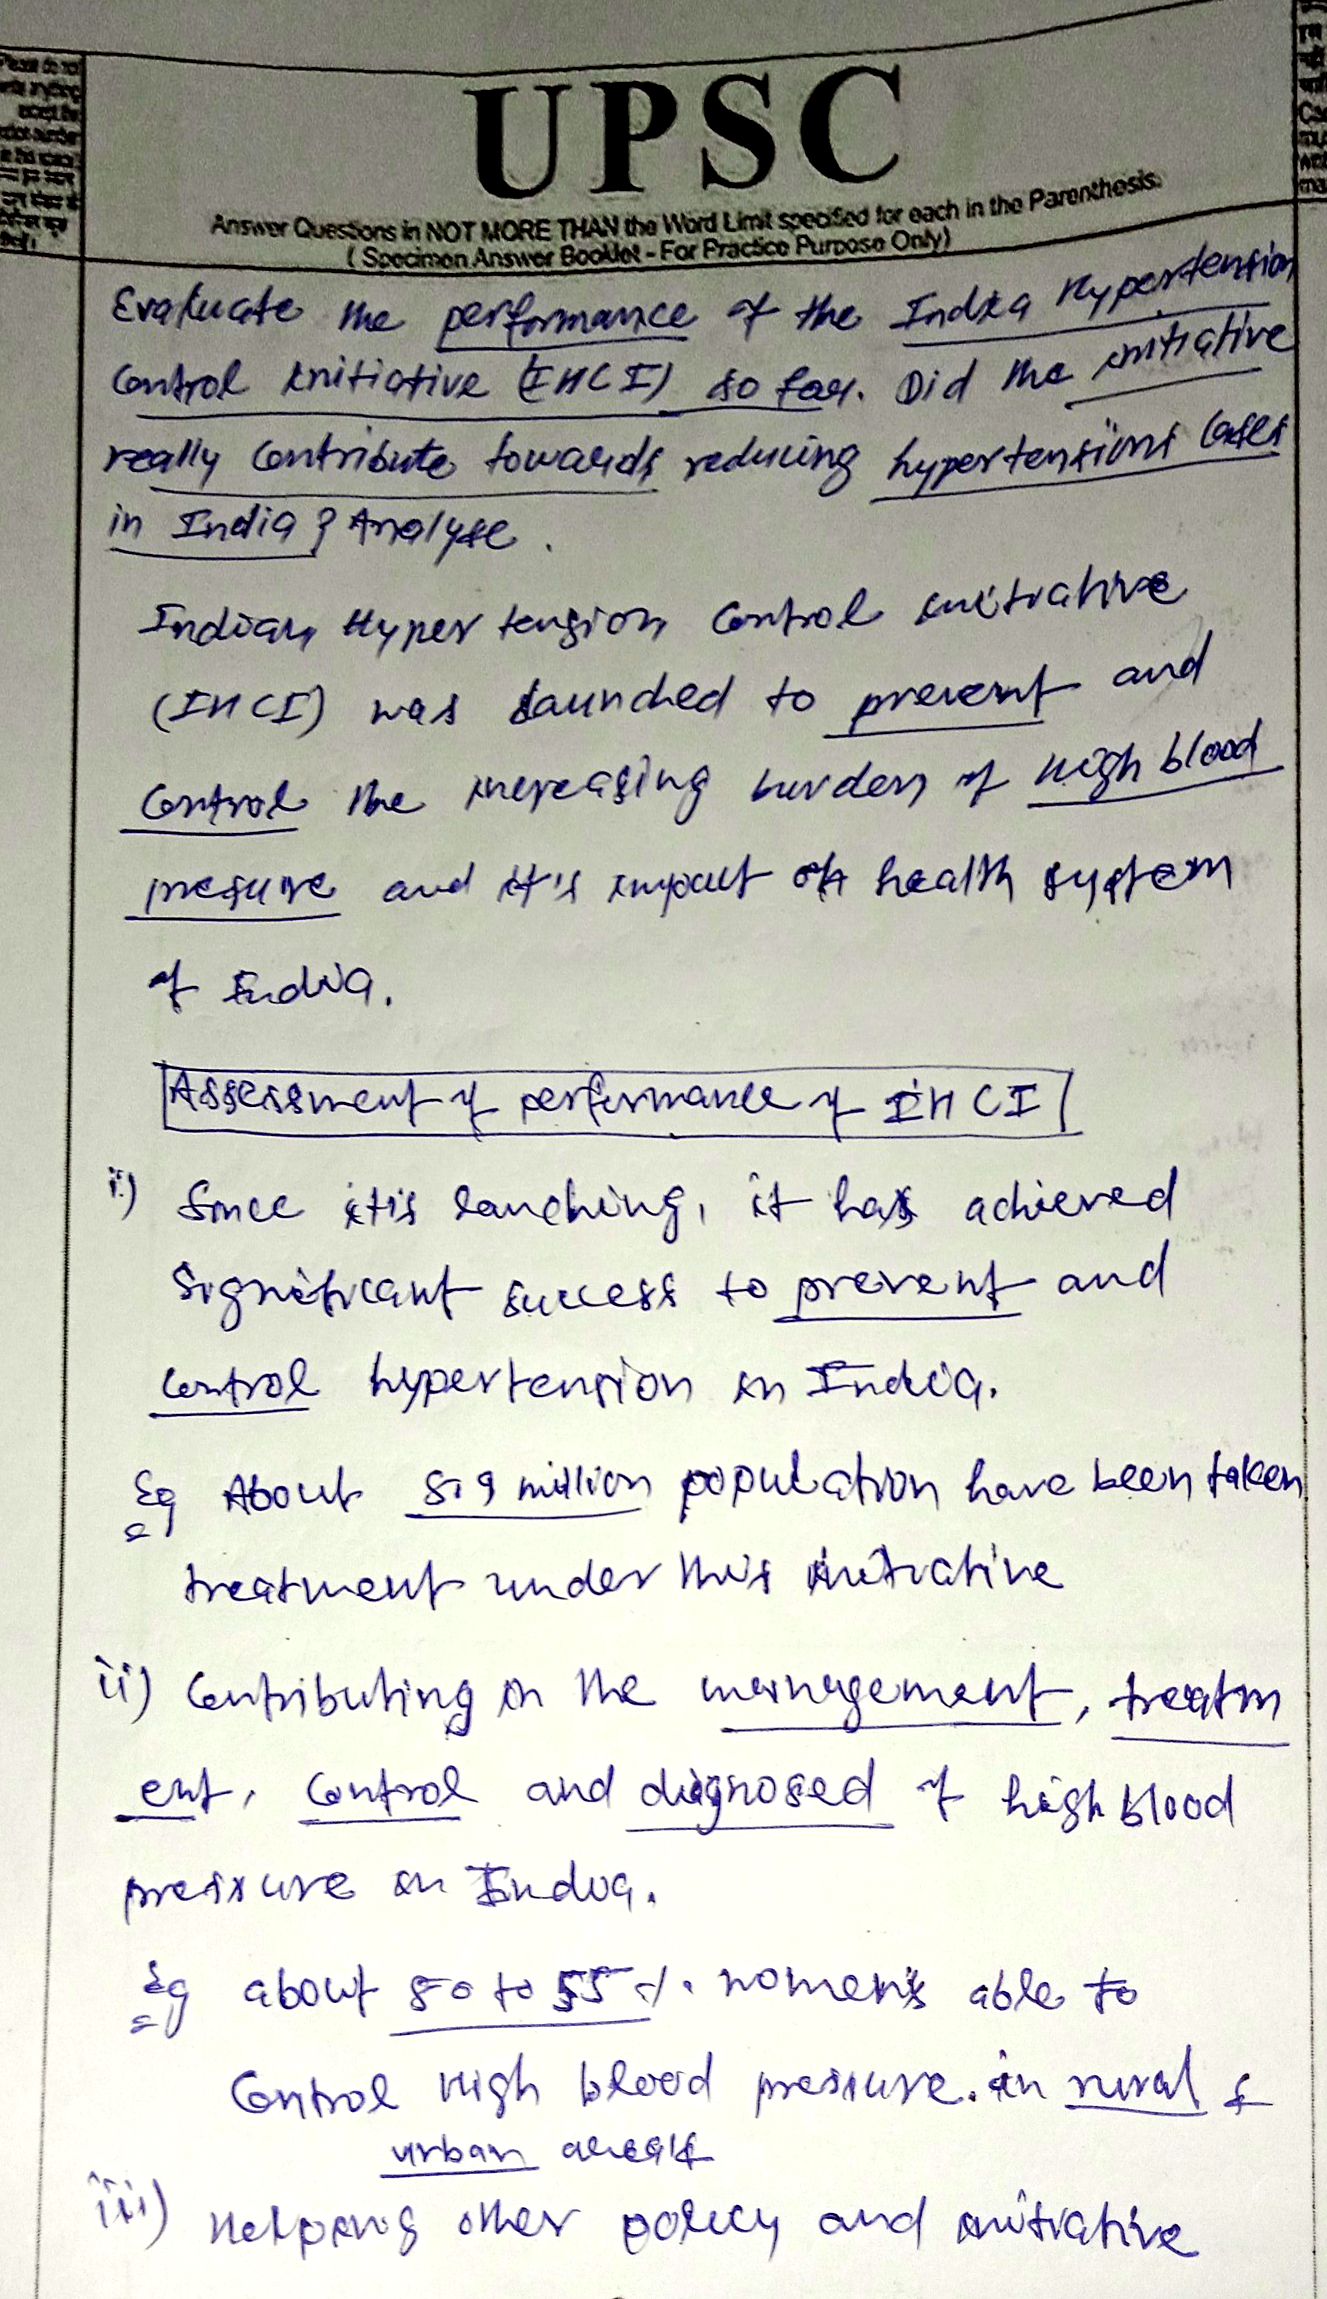 Please do not
write anything
except the
question number
in this space
UPSC
Answer Questions in NOT MORE THAN the Word Limit specified for each in the Parenthesis.
( Specimen Answer Booklet - For Practice Purpose Only)
Evaluate the performance of the India Hypertension
Control Initiative (IHCI) so far. Did the initiative
really Contribute towards reducing hypertensions Cases
in India? Analyse.
Indian Hypertension Control initiative
(IHCI) was launched to prevent and
Control the increasing burden of high blood
pressure and it's impact on health system
of India.
Assessment of performance of IHCI
i) Since it's lanching, it has achieved
significant success to prevent and
control hypertension in India.
Eg About 5.9 million population have been taken
treatment under this initiative
ii) Contributing in the management, treatm
ent, Control and diagnosed of high blood
pressure in India.
Eg about 50 to 55 %. women's able to
Control high blood pressure. in rural &
urban areas
iii) Helping other policy and initiative